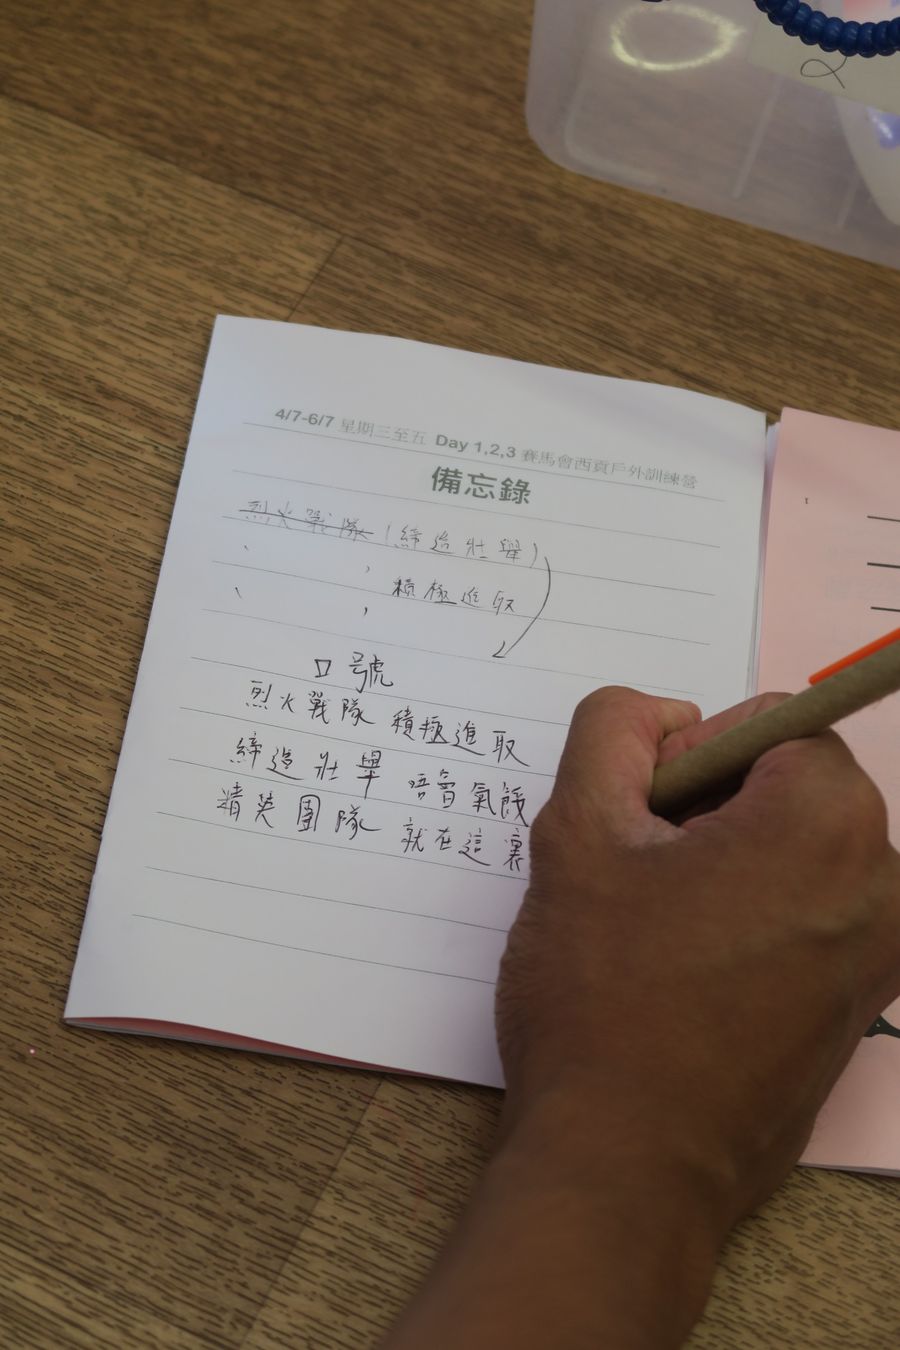 4/7-6/7 星期三至五 Day 1,2,3 賽馬會西貢戶外訓練營
備忘錄
烈火戰隊 (締造壯舉)
積極進取
口號
烈火戰隊 積極進取
締造壯舉 唔會氣餒
精英團隊 就在這裏